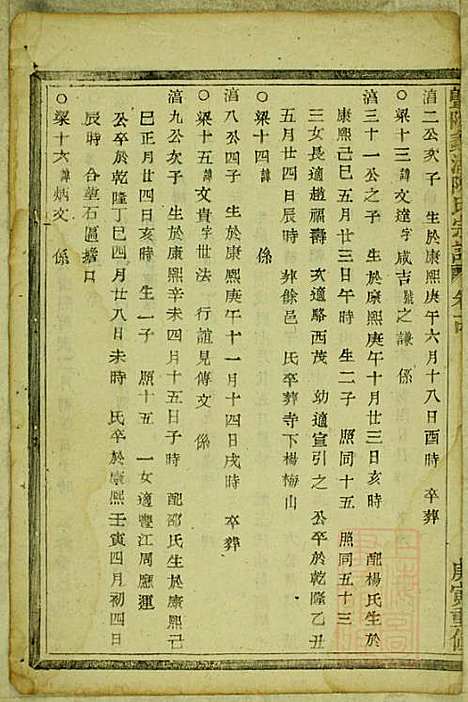 陳氏宗譜
庚寅重修
滈二公次子 生於康熙庚午六月十八日酉時 卒葬
○梁十三諱文達字咸吉號之謙 係
滈三十一公之子 生於康熙庚午十月廿三日亥時 配楊氏生於
康熙己巳五月廿三日午時 生二子 照同十五 照同五十三
三女長適趙福壽 次適駱西茂 幼適宣引之 公卒於乾隆乙丑
五月廿四日辰時 葬餘邑 氏卒葬寺下楊梅山
○梁十四諱 係
滈八公四子 生於康熙庚午十一月十四日戌時 卒葬
○梁十五諱文貴字世法 行誼見傳文 係
滈九公次子 生於康熙辛未四月十五日子時 配邵氏生於康熙己
巳正月廿四日亥時 生一子 照十五 一女適豐江周應運
公卒於乾隆丁巳四月廿八日未時 氏卒於康熙壬寅四月初四日
辰時 合葬石區擔口
○梁十六諱炳文 係